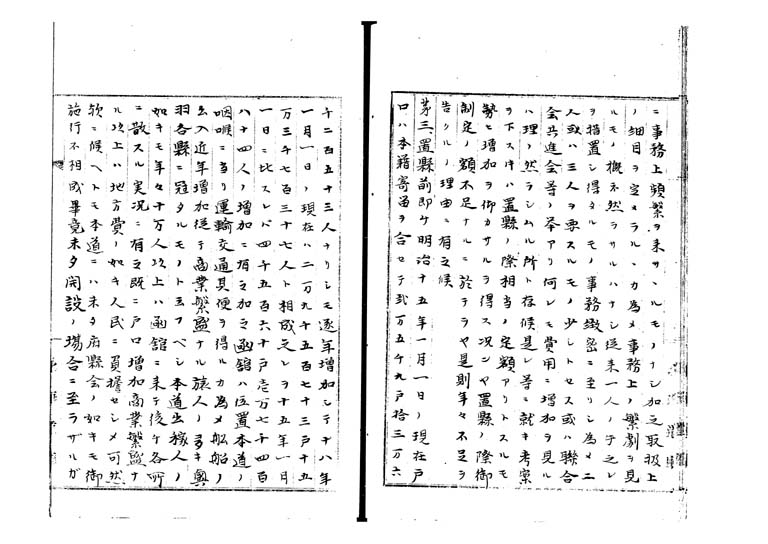 ニ事務上頻繁ヲ来サヽルモノナシ加之取扱上
ノ細目ヲ定メラルヽカ為メ事務上ノ繁劇ヲ見
ルモノ概ネ然ラサルハナシ従来一人ノ手之レ
ヲ措置シ得タルモノ事務緻密ニ至リシ為メ二
人或ハ三人ヲ要スルモノ少シトセス或ハ聯合
会共進会等ノ挙アリ何レモ費用ニ増加ヲ見ル
ハ理ノ然ラシムル所ト存候是レ等ニ就キ考案
ヲ下ス时ハ置縣ノ際相当ノ定額アリトスルモ
勢ヒ増加ヲ仰カサルヲ得ス况ンヤ置縣ノ際御
制定ノ額不足ナルニ於テヲヤ是則年々不足ヲ
告クルノ理由ニ有之候
第三置縣前即チ明治十五年一月一日ノ現在戸
口ハ本籍寄畄ヲ合セテ弐万五千九戸拾三万六
千二百五十三人ナリシモ逐年増加シテ十八年
一月一日ノ現在ハ二万九千五百七十三戸十五
万三千七百三十七人ト相成之レヲ十五年一月
一日ニ比スレバ四千五百六十戸壱万七千四百
八十四人ノ増加ニ有之加之函舘ハ位置本道ノ
咽喉ニ当リ運輸交通具便ヲ得ルカ為メ舩舶ノ
出入近年増加従テ商業繁盛ナル旅人ノ多キ奥
羽各縣ニ冠タルモノト云フベシ本道出稼人ノ
如キモ年々十万人以上ハ函舘ニ来テ後ケ各所
ニ散スル実况ニ有之既ニ戸口増加商業繁盛ナ
ル以上ハ地方費ノ如キ人民ニ負擔セシメ可然
欤ニ候ヘトモ本道ニハ未タ府縣会ノ如キモ御
施行不相成畢竟未タ開設ノ場合ニ至ラザルガ